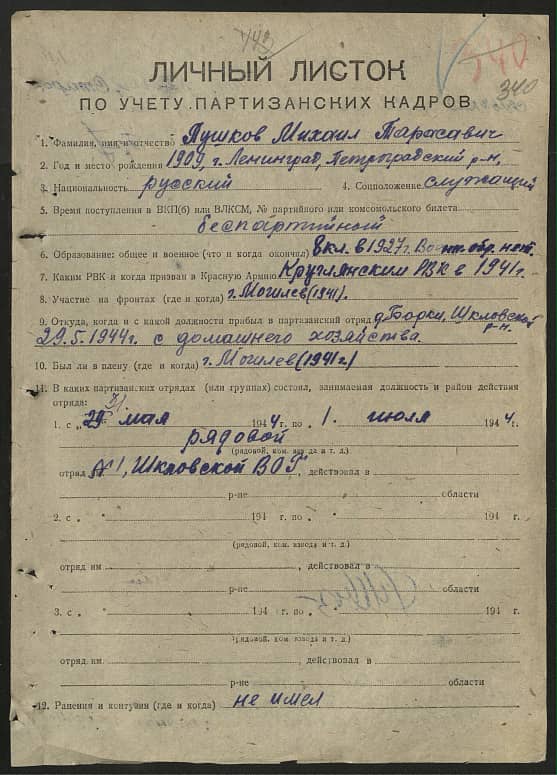 340
340
ЛИЧНЫЙ ЛИСТОК
ПО УЧЕТУ ПАРТИЗАНСКИХ КАДРОВ
1. Фамилия, имя и отчество Пушков Михаил Тарасавич
2. Год и место рождения 1909, г. Ленинград, Петроградский р-н,
3. Национальность русский 4. Соцположение служащий
5. Время поступления в ВКП(б) или ВЛКСМ, № партийного или комсомольского билета
беспартийный
6. Образование: общее и военное (что и когда окончил) 8 кл. в 1927г. Воен. обр. нет.
7. Каким РВК и когда призван в Красную Армию Круглянским РВК в 1941г.
8. Участие на фронтах (где и когда) г. Могилев (1941).
9. Откуда, когда и с какой должности прибыл в партизанский отряд д. Борки, Шкловской р-н.
29.5.1944г. с домашнего хозяйства.
10. Был ли в плену (где и когда) г. Могилев (1941г.)
11. В каких партизанских отрядах (или группах) состоял, занимаемая должность и район действия
отряда:
1. с „29 мая 1944 г. по „1. июля 1944 г.
рядовой
(рядовой, ком. взвода и т. д.)
отряд №1, Шкловской ВОГ, действовал в
р-не области
2. с „ “ 194 г. по „ “ 194 г.
(рядовой, ком. взвода и т. д.)
отряд им , действовал в
р-не области
3. с „ “ 194 г. по „ “ 194 г.
(рядовой, ком. взвода и т. д.)
отряд им. , действовал в
р-не области
12. Ранения и контузии (где и когда) не имел